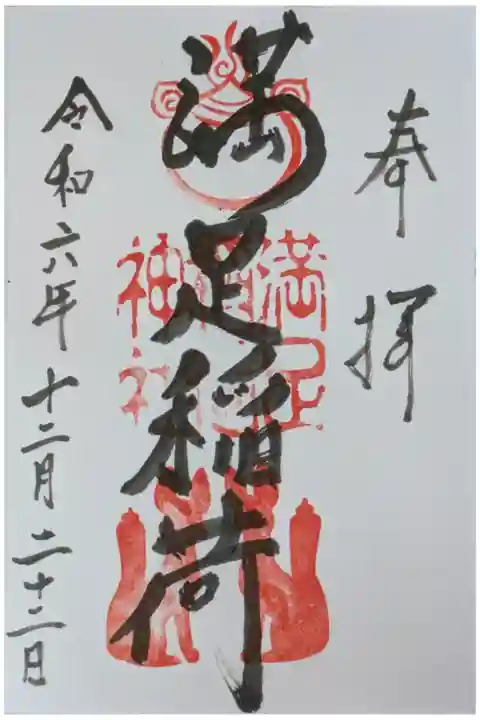 奉拝
満足稲荷
満足
稲荷
神社
令和六年十二月二十二日